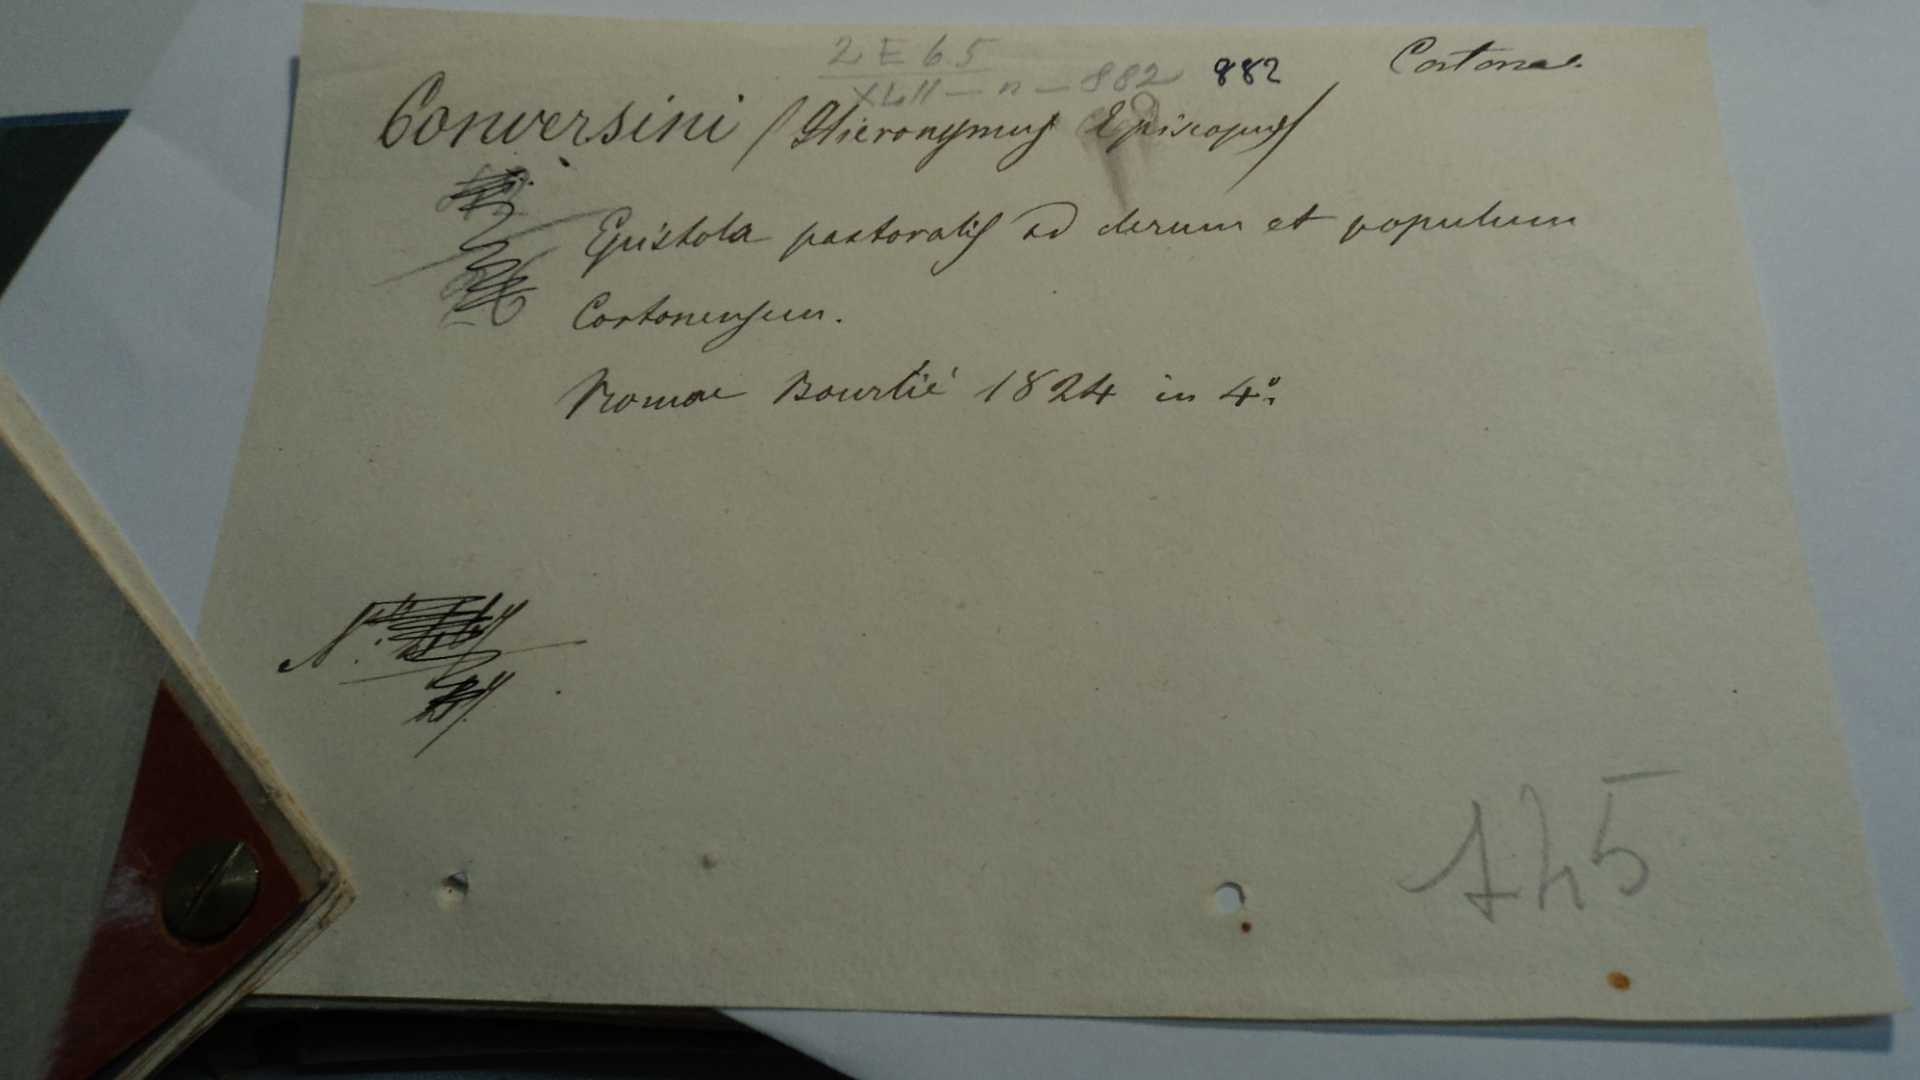 2 E 65
XLII - n - 882 882 Cortonae.
Conversini (Hieronymus Episcopus)
Epistola pastoralis ad clerum et populum
Cortonensem.
Romae Bourlié 1824 in 4º.
N.
145